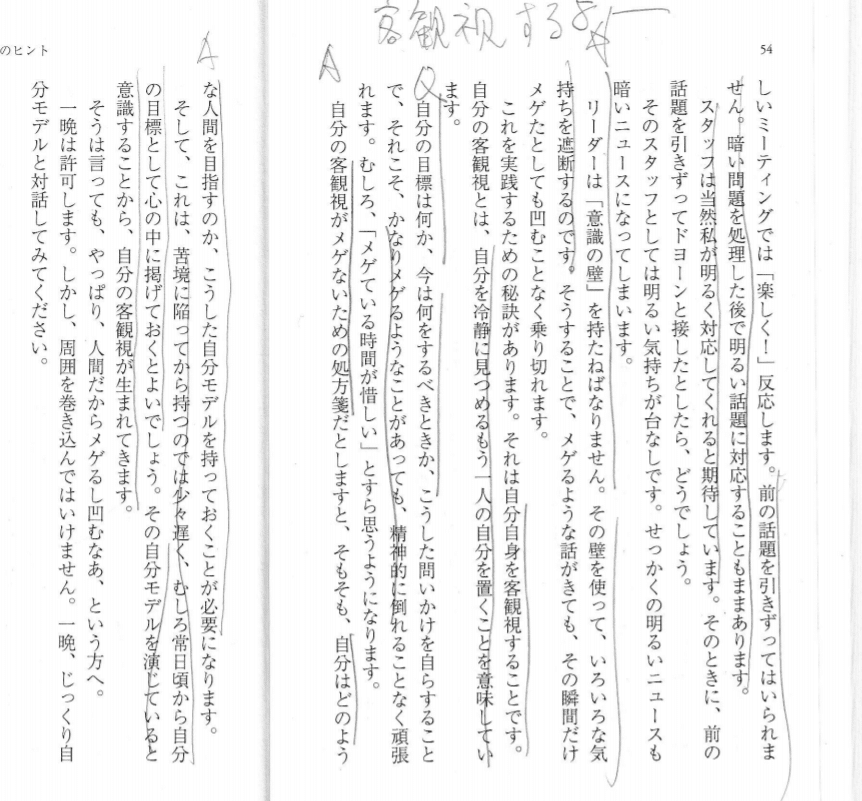 客観視する
54
しいミーティングでは「楽しく！」反応します。前の話題を引きずってはいられま
せん。暗い問題を処理した後で明るい話題に対応することもままあります。
スタッフは当然私が明るく対応してくれると期待しています。そのときに、前の
話題を引きずってドヨーンと接したとしたら、どうでしょう。
そのスタッフとしては明るい気持ちが台なしです。せっかくの明るいニュースも
暗いニュースになってしまいます。
リーダーは「意識の壁」を持たねばなりません。その壁を使って、いろいろな気
持ちを遮断するのです。そうすることで、メゲるような話がきても、その瞬間だけ
メゲたとしても凹むことなく乗り切れます。
これを実践するための秘訣があります。それは自分自身を客観視することです。
自分の客観視とは、自分を冷静に見つめるもう一人の自分を置くことを意味してい
ます。
Q
自分の目標は何か、今は何をするべきときか、こうした問いかけを自らすること
で、それこそ、かなりメゲるようなことがあっても、精神的に倒れることなく頑張
れます。むしろ、「メゲている時間が惜しい」とすら思うようになります。
A
自分の客観視がメゲないための処方箋だとしますと、そもそも、自分はどのよう
のヒント
A
な人間を目指すのか、こうした自分モデルを持っておくことが必要になります。
そして、これは、苦境に陥ってから持つのでは少々遅く、むしろ常日頃から自分
の目標として心の中に掲げておくとよいでしょう。その自分モデルを演じていると
意識することから、自分の客観視が生まれてきます。
そうは言っても、やっぱり、人間だからメゲるし凹むなあ、という方へ。
一晩は許可します。しかし、周囲を巻き込んではいけません。一晩、じっくり自
分モデルと対話してみてください。